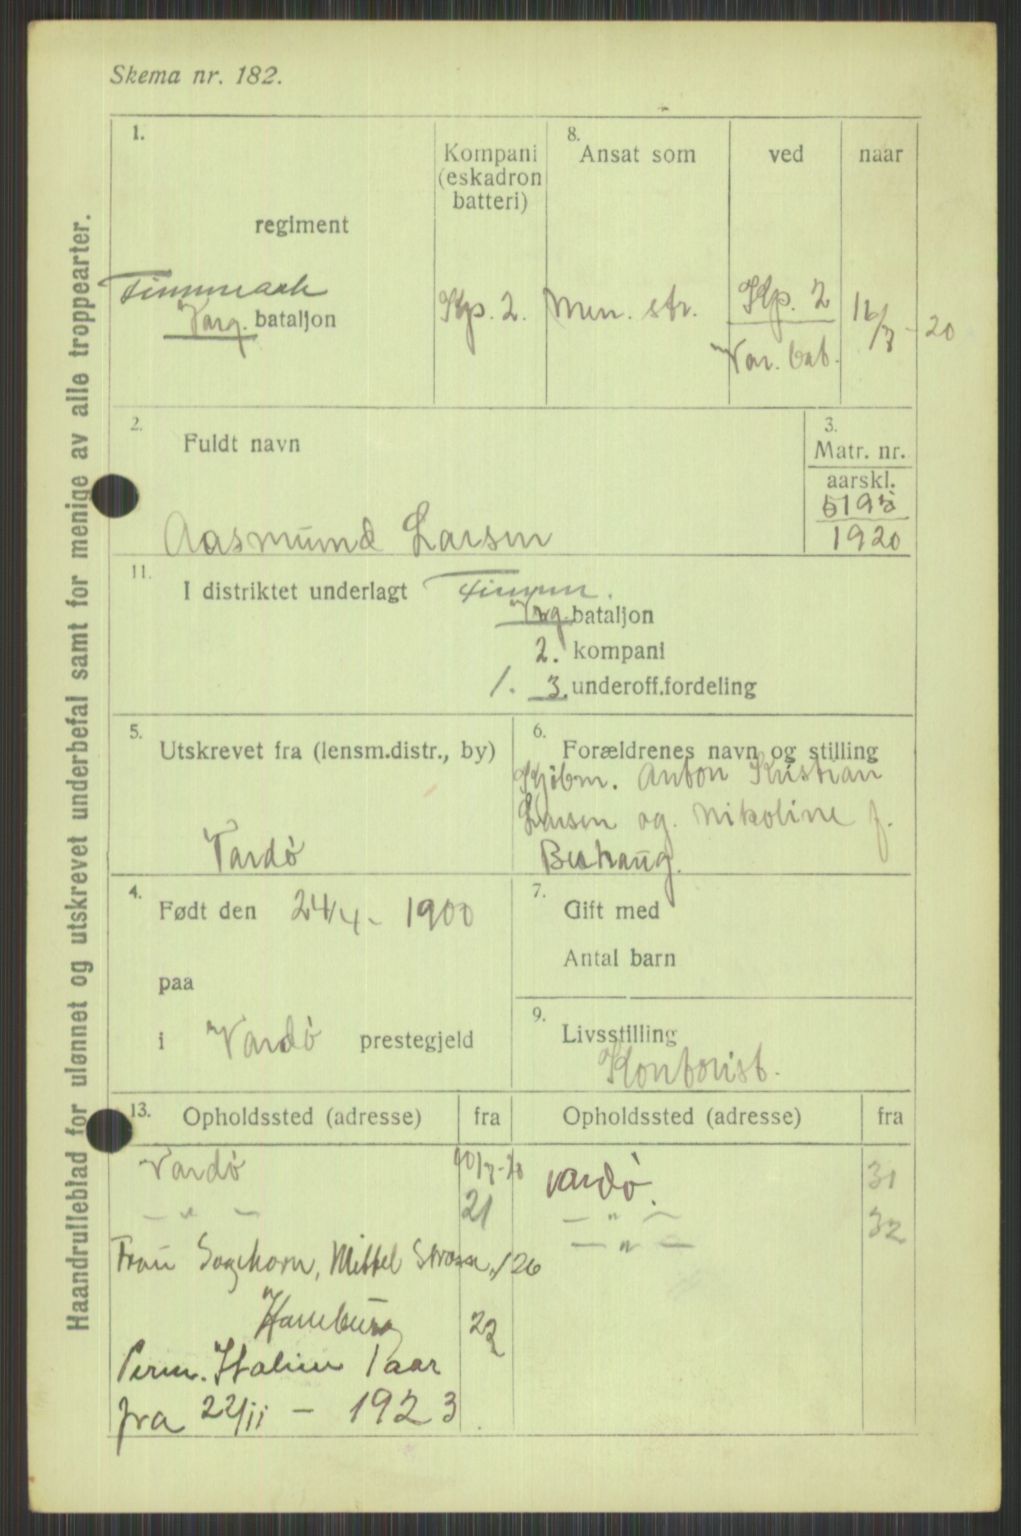 Skema nr. 182.
Haandrulleblad for ulønnet og utskrevet underbefal samt for menige av alle troppearter.
1.
regiment
Varg. bataljon
Kompani
(eskadron
batteri)
Kp. 2.
8.
Ansat som
Men. str.
ved
Kp. 2
Var. bat.
naar
16/7 - 20
2.
Fuldt navn
Aasmund Larsen
3.
Matr. nr.
aarskl.
5195
1920
11.
I distriktet underlagt
Varg. bataljon
2. kompani
1. 3. underoff.fordeling
5.
Utskrevet fra (lensm.distr., by)
Vardø
6.
Forældrenes navn og stilling
Kjøbm. Anton Kristian
Larsen og Nikoline f.
4.
Født den 24/4 - 1900
paa
i Vardø prestegjeld
7.
Gift med
Antal barn
9.
Livsstilling
Kontorist.
13.
Opholdssted (adresse) fra
Vardø
— " — 21
Frau Sagehorn, Mittel Strasse, 126
Hamburg 22
Perm. Italien 1 aar
fra 22/11 - 1923.
Opholdssted (adresse) fra
Vardø. 31
— " — 32
— " —